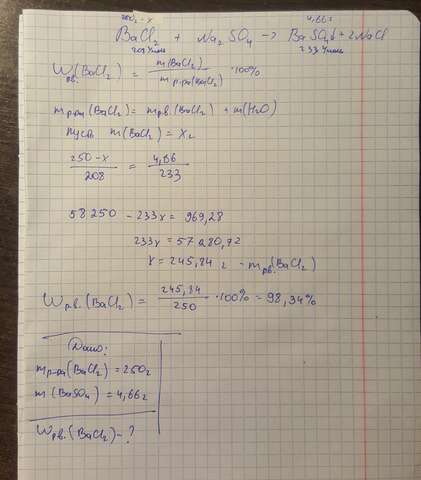 250г - x 4,66г
BaCl₂ + Na₂SO₄ → BaSO₄↓ + 2NaCl
208 г/моль 233 г/моль
Wр.в.(BaCl₂) = m(BaCl₂) / mр-ра(BaCl₂) · 100%
mр-ра(BaCl₂) = mр.в.(BaCl₂) + m(H₂O)
пусть m(BaCl₂) = xг
250-x / 208 = 4,66 / 233
58250 - 233x = 969,28
233x = 57280,72
x = 245,84 г - mр.в.(BaCl₂)
Wр.в.(BaCl₂) = 245,84 / 250 · 100% = 98,34%
Дано:
mр-ра(BaCl₂) = 250г
m(BaSO₄) = 4,66г
Wр.в.(BaCl₂) - ?